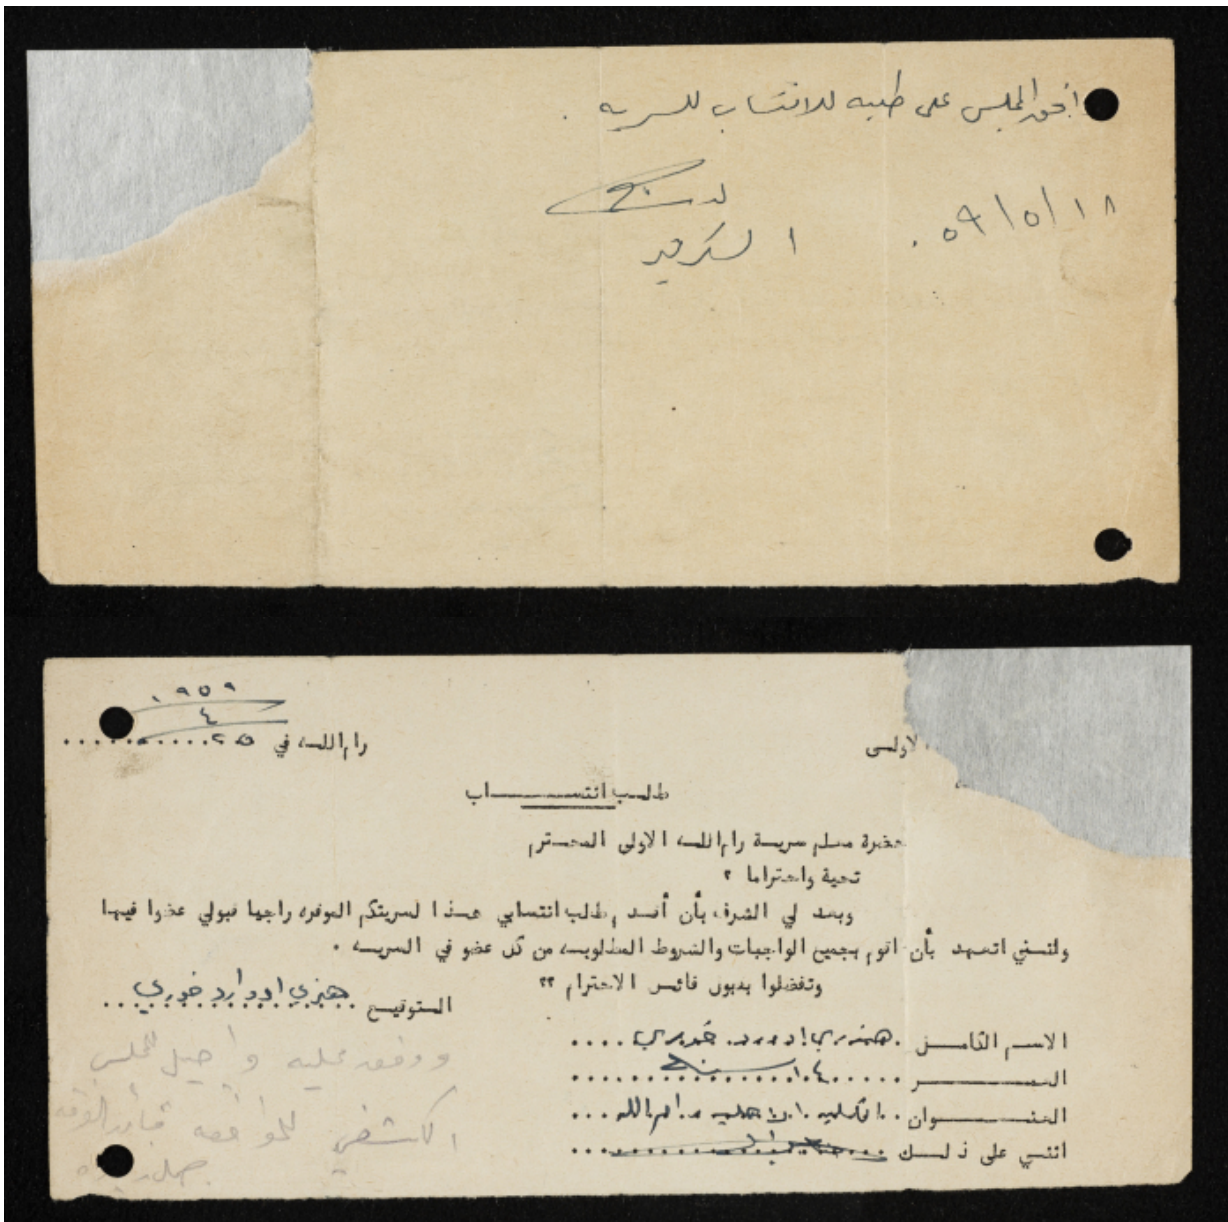 وافق المجلس على طلبه للانتساب للسريه .
السكرتير
٥٩/٥/١٨ .
١٩٥٩
٤
رام اللـه في ٢٥
الاولـى
طلـب انتســـاب
حضرة معلم سريـة رام اللـه الاولى المحـترم
تحية واحتراما ؟
وبعد لي الشرف بأن أقدم طلب انتسابي هـذا لسريتكم الموقره راجيا قبولي عضوا فيها
وانـني اتعـهد بأن اقوم بجميع الواجبات والشروط المطلوبـه من كل عضو في السريـه .
وتفضلوا بقبول فائـق الاحترام ؟؟
التوقيـع هنري ادوارد خوري
الاسـم الكامـل هنري ادورد خوري
العمـــــر ١٤ سنة
العنـــوان الكليه الاهليه رام الله
اثنـي على ذلـك
ووفق عليه واحيل لمجلس
الكشفي للموافقه